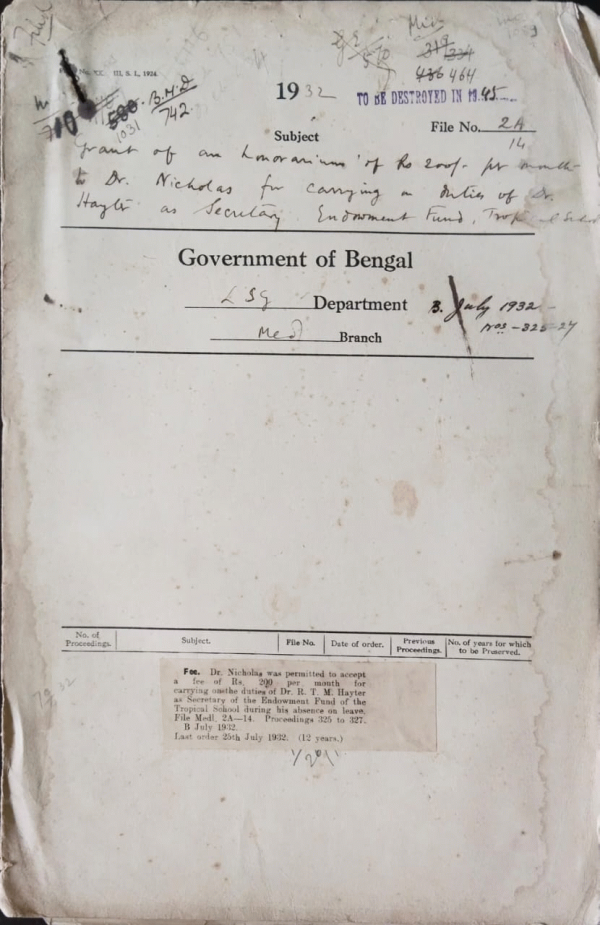 III, S. I., 1924.
319 334
436 464
580
B.M.D
742
1031
1932
TO BE DESTROYED IN 1945
Subject
File No. 2A
14
Grant of an honorarium of Rs 200/- per month
to Dr. Nicholas for carrying on duties of Dr.
Hayter as Secretary Endowment Fund, Tropical School
Government of Bengal
LSG Department
B. July 1932
Nos - 325-27
Med Branch
No. of Proceedings.
Subject.
File No.
Date of order.
Previous Proceedings.
No. of years for which to be Preserved.
Fee. Dr. Nicholas was permitted to accept
a fee of Rs. 200 per month for
carrying on the duties of Dr. R. T. M. Hayter
as Secretary of the Endowment Fund of the
Tropical School during his absence on leave.
File Medl. 2A—14. Proceedings 325 to 327.
B July 1932.
Last order 25th July 1932. (12 years.)